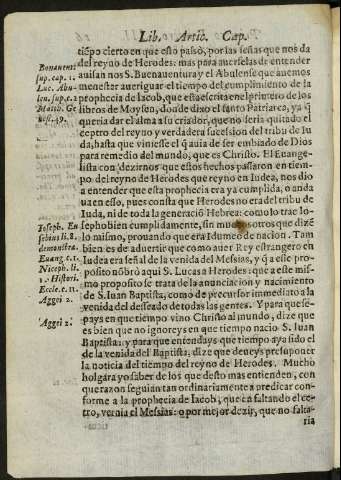 Lib. Artic. Cap.
tiẽpo cierto en que esto passò, por las señas que nos da
del reyno de Herodes: mas para auerselas de entender
auisan nos S. Buenauentura y el Abulense que auemos
menester aueriguar el tiempo del cumplimiento de la
prophecia de Iacob, que esta escrita en el primero de los
libros de Moysen, donde dixo el santo Patriarca, ya q̃
queria dar el alma a su criador, que no seria quitado el
ceptro del reyno y verdadera sucession del tribu de Iu
da, hasta que viniesse el q̃ auia de ser embiado de Dios
para remedio del mundo, que es Christo. El Euange-
lista con dezirnos que estos hechos passaron en tiem-
po del reyno de Herodes que reyno en Iudea, nos dio
a entender que esta prophecia era ya cumplida, o anda
ua en esso, pues consta que Herodes no era del tribu de
Iuda, ni de toda la generaciõ Hebrea: como lo trae Io-
sepho bien cumplidamente, sin muchos otros que dizẽ
lo mismo, prouando que era Idumeo de nacion. Tam
bien es de aduertir que como auer Rey estrangero en
Iudea era señal de la venida del Messias, y q̃ a este pro
posito nõbrò aqui S. Lucas a Herodes: que a este mis-
mo proposito se trata de la anunciacion y nacimiento
de S. Iuan Baptista, como de precursor immediato a la
venida del desseado de todas las gentes. Y para que se-
pays en que tiempo vino Christo al mundo, dize que
es bien que no ignoreys en que tiempo nacio S. Iuan
Baptista: y para que entendays que tiempo aya sido el
de la venida del Baptista, dize que deueys presuponer
la noticia del tiempo del reyno de Herodes. Mucho
holgára yo saber de los que desto mas entienden, con
que razon seguian tan ordinariamente a predicar con-
forme a la prophecia de Iacob, que en faltando el ce-
tro, vernia el Messias: o por mejor dezir, que no falta-
ria
Bonauent.
sup. cap. 1.
Luc. Abu-
len. sup. c. 2
Matth. Ge
nes. 49.
Ioseph. Eu
sebius li. 8.
demonstra.
Euang. c. 1.
Niceph. li.
1. Histori.
Eccle. c. 11.
Aggei 2.
Aggei 2.